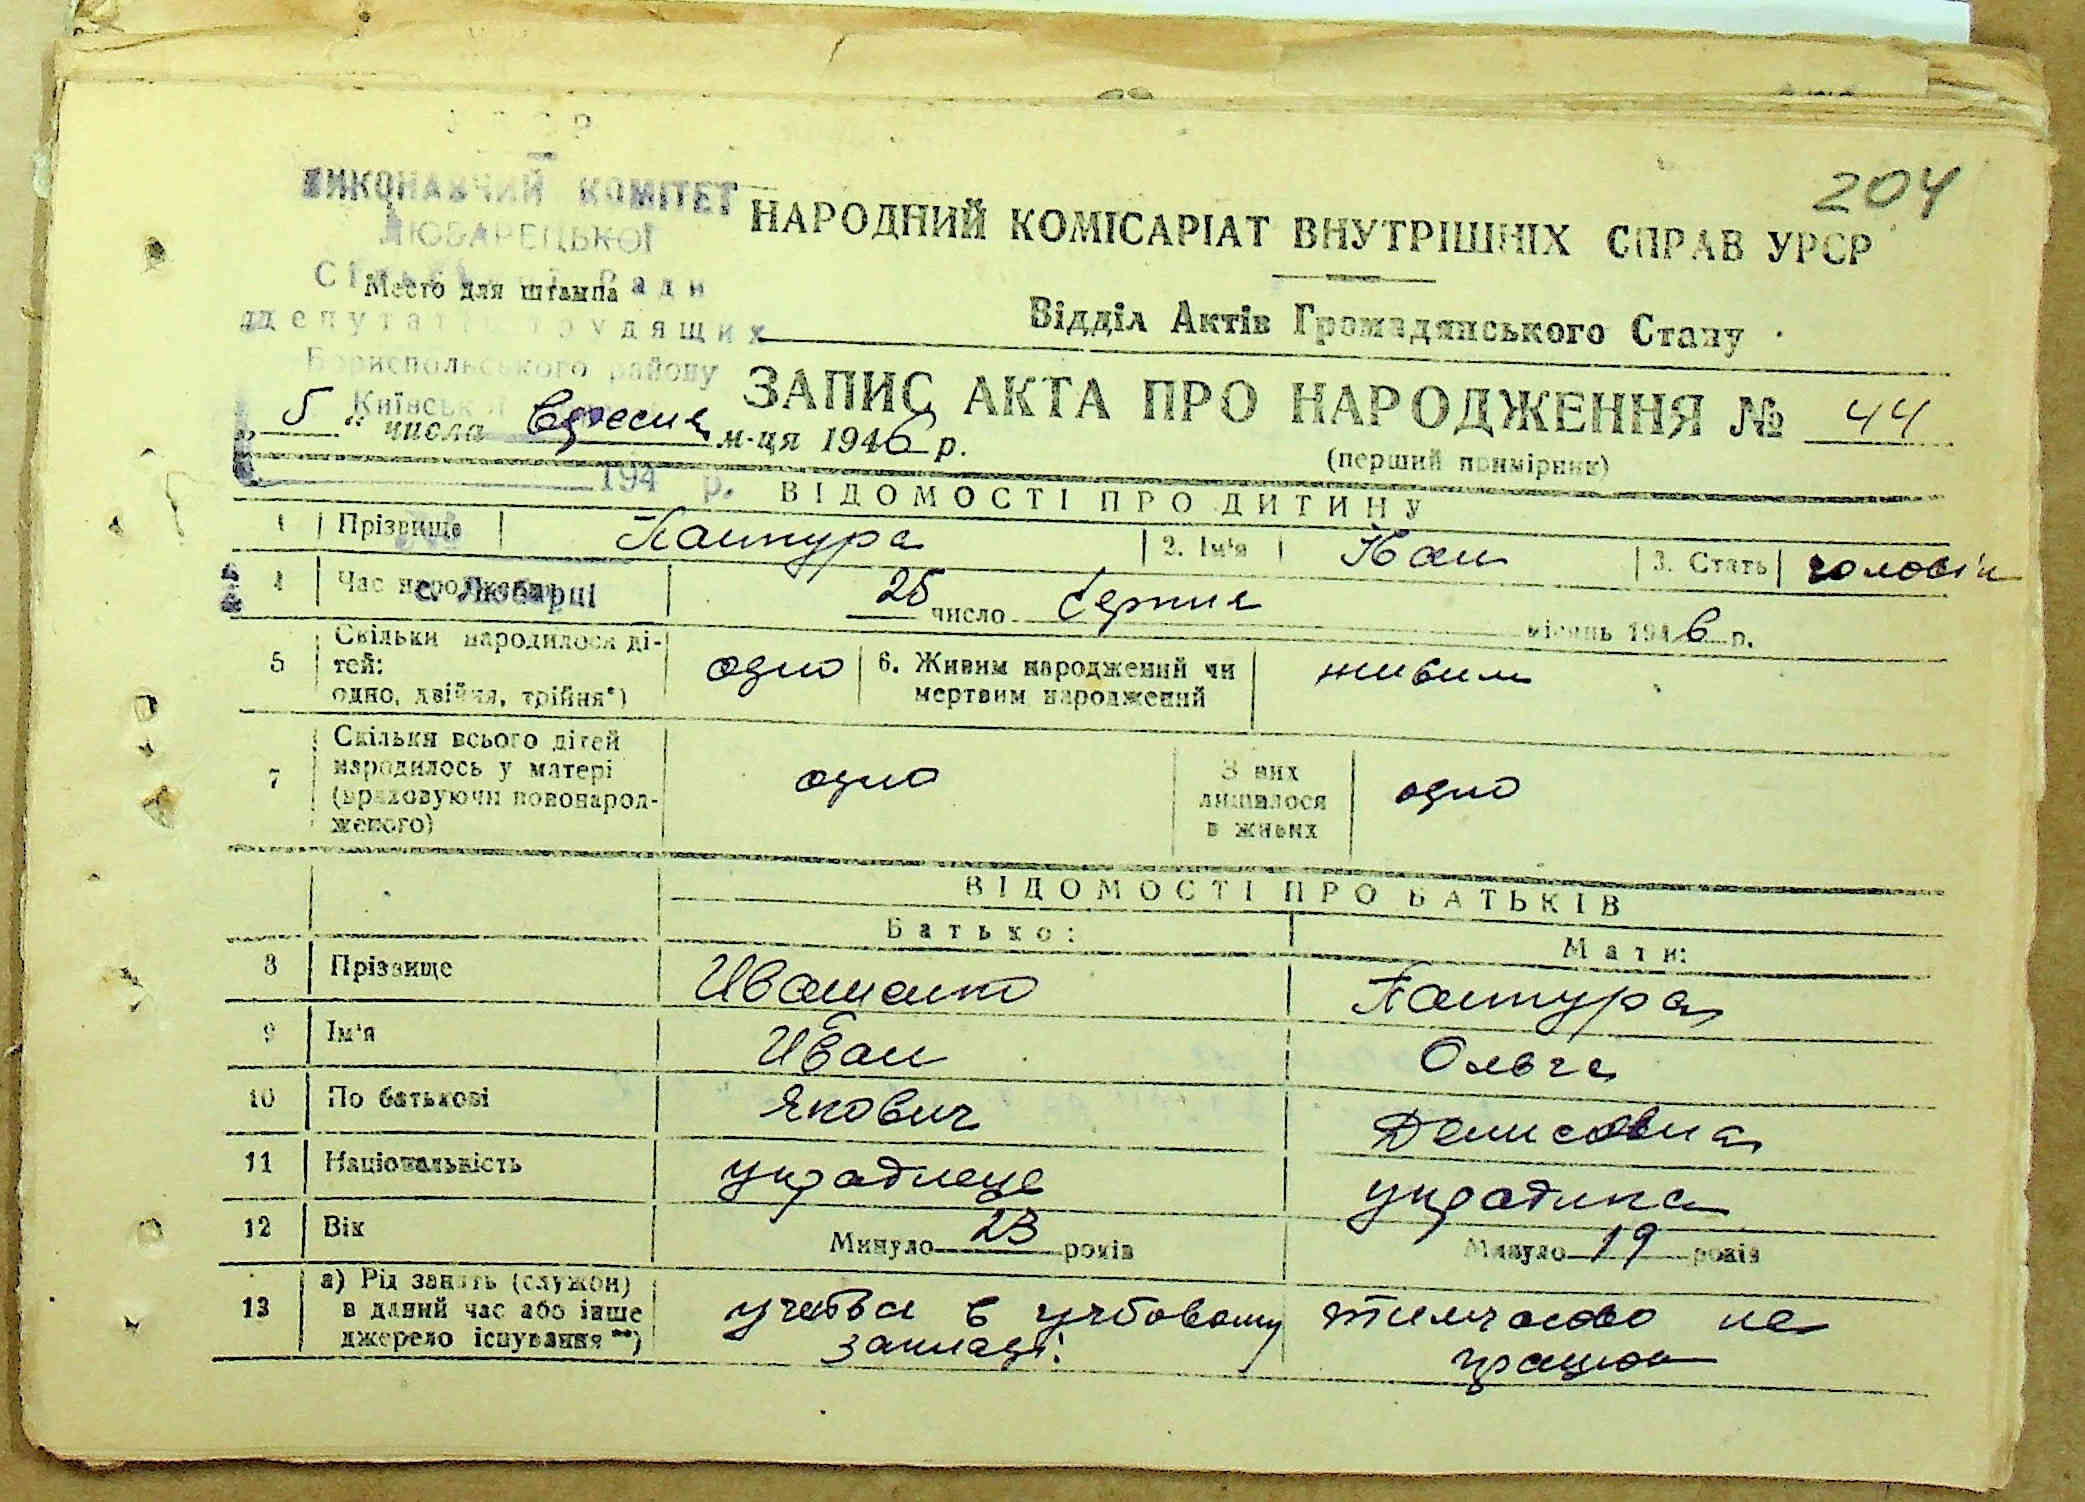 204
УРСР
ВИКОНАВЧИЙ КОМІТЕТ
ЛЮБАРЕЦЬКОЇ
Сільської Ради
депутатів трудящих
Бориспольського району
Київської
194 р.
с. Любарці
НАРОДНИЙ КОМІСАРІАТ ВНУТРІШНІХ СПРАВ УРСР
Место для штампа
Відділ Актів Громадянського Стану
ЗАПИС АКТА ПРО НАРОДЖЕННЯ № 44
„ 5 “ числа Вересня м-ця 1946 р.
(перший примірник)
ВІДОМОСТІ ПРО ДИТИНУ
1 Прізвище Пантура 2. Ім'я Іван 3. Стать чоловіч
4 Час народження 25 число Серпня місяць 1946 р.
5 Скільки народилося ді-
тей:
одно, двійня, трійня*) одно 6. Живим народжений чи
мертвим народжений живим
7 Скільки всього дітей
народилось у матері
(враховуючи новонарод-
женого) одно З них
лишилося
в живих одно
ВІДОМОСТІ ПРО БАТЬКІВ
Батько: Мати:
8 Прізвище Иваненко Пантура
9 Ім'я Иван Ольга
10 По батькові Якович Денисовна
11 Національність українець українка
12 Вік Минуло 23 років Минуло 19 років
13 а) Рід занять (служби)
в даний час або інше
джерело існування**) учиться в учбовому
закладі. тимчасово не
працює